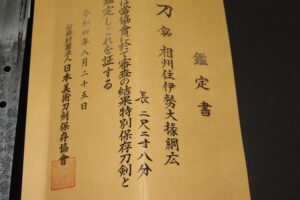 鑑定書
刀 銘 相州住伊勢大掾綱広
長 二尺二寸八分
は當協會に於て審査の結果特別保存刀剣と
鑑定しこれを証する
令和四年八月二十五日
公益財団法人 日本美術刀剣保存協會